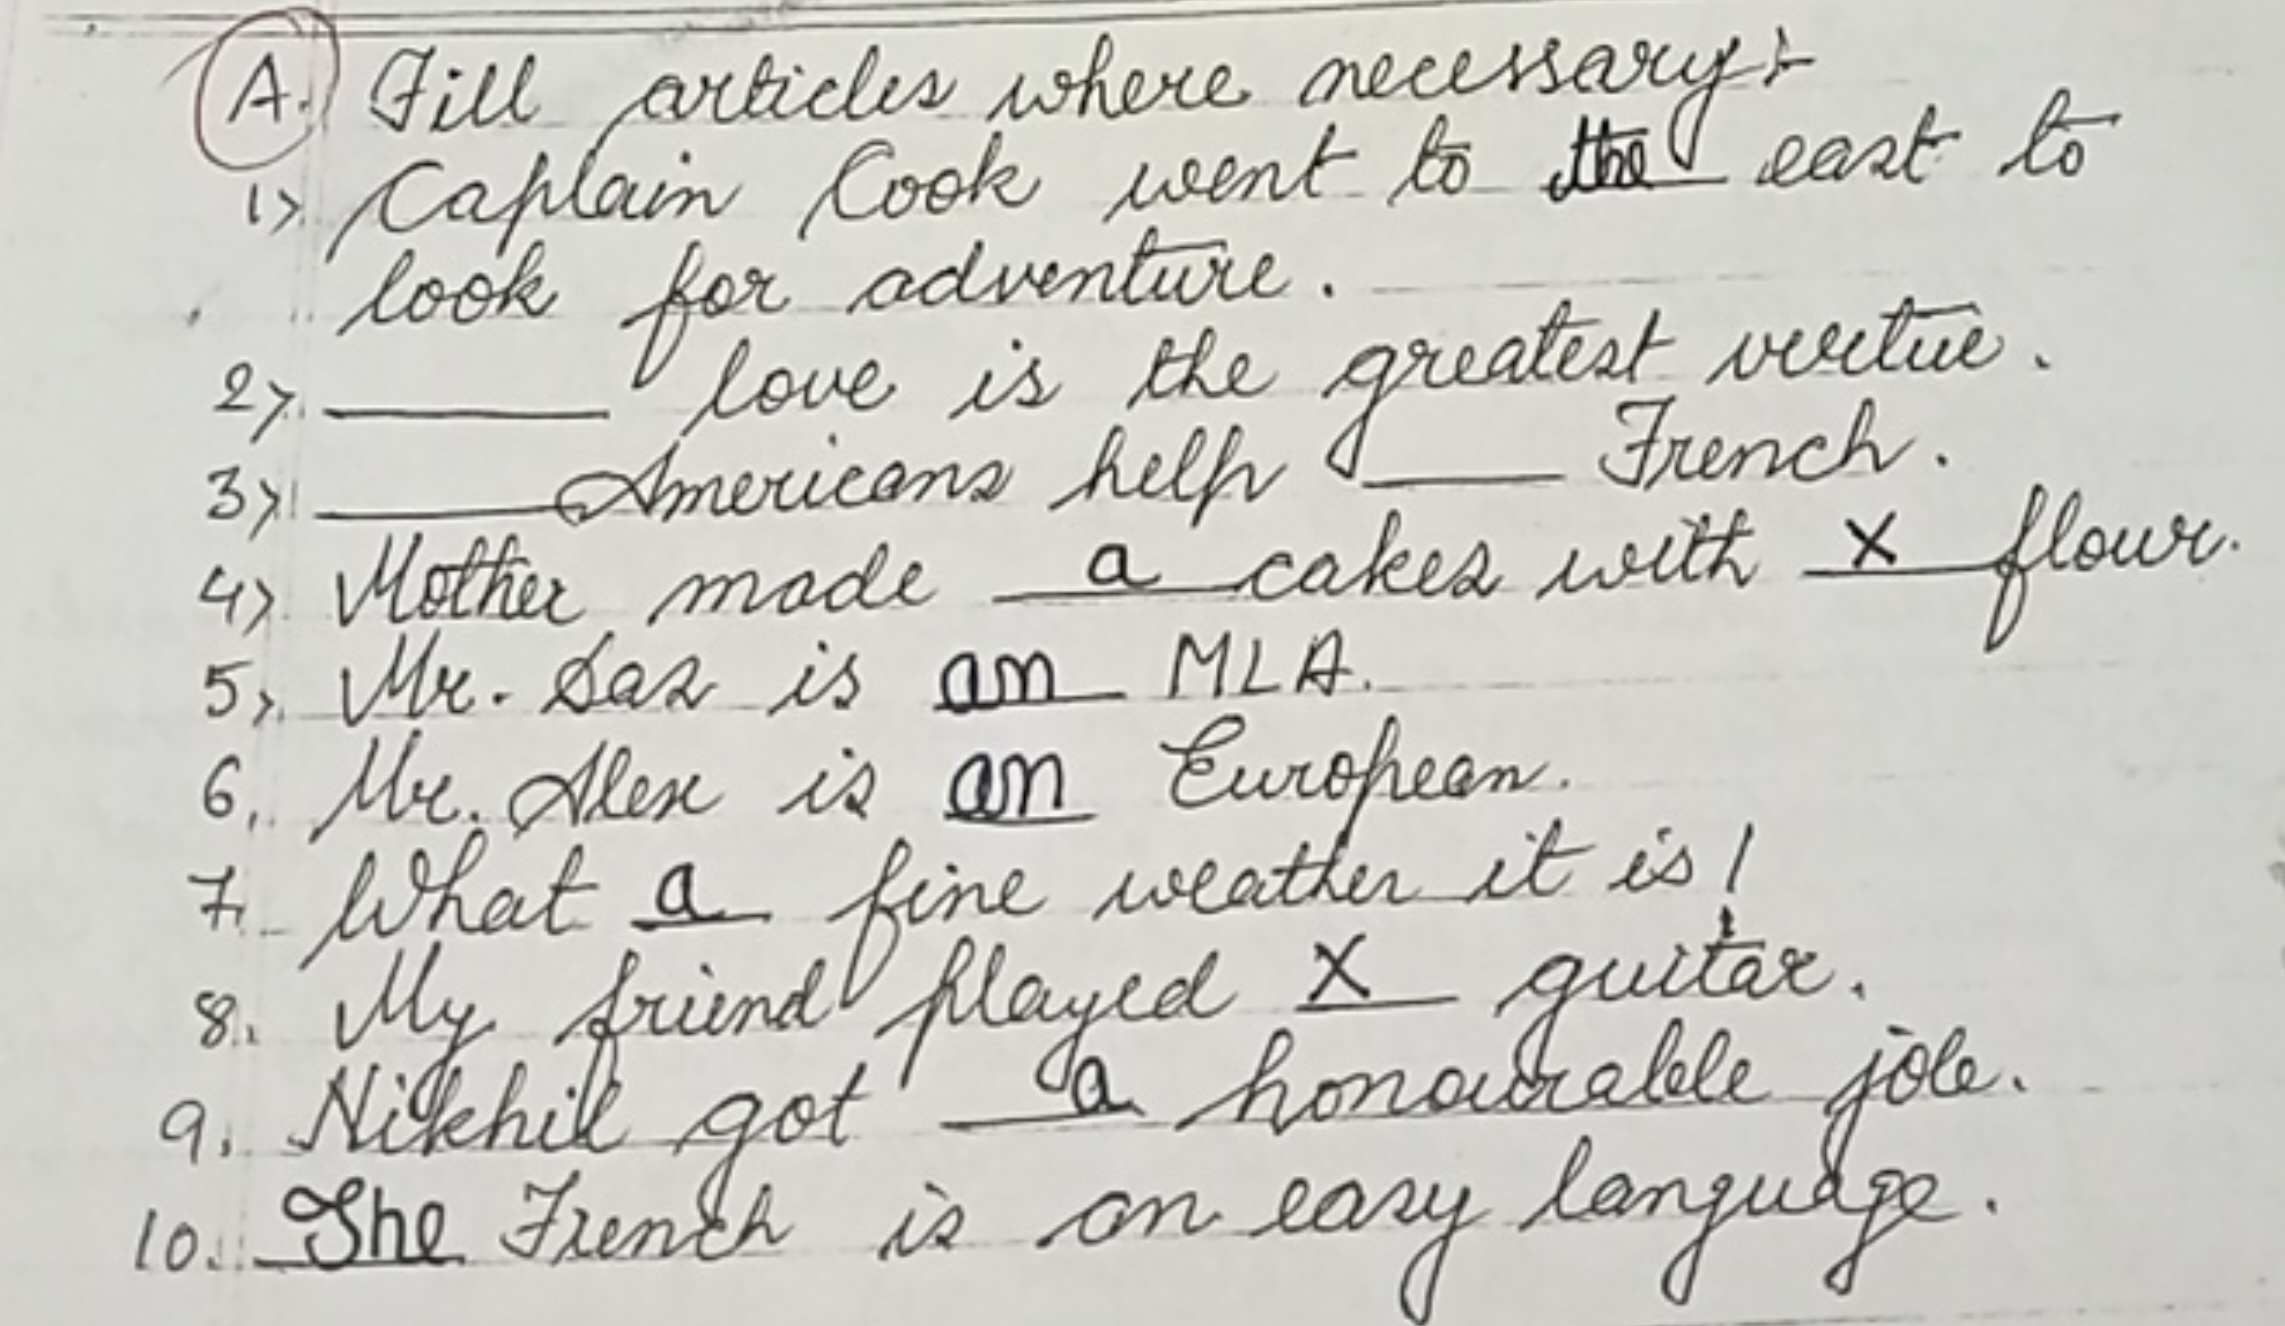 A. Fill articles where necessary :-
1> Captain Cook went to the east to
look for adventure.
2> ______ love is the greatest virtue.
3> ______ Americans help ____ French.
4> Mother made a cakes with x flour.
5> Mr. Das is an MLA.
6. Mr. Alex is an European.
7. What a fine weather it is!
8. My friend played X guitar.
9. Nikhil got a honourable job.
10. The French is an easy language.